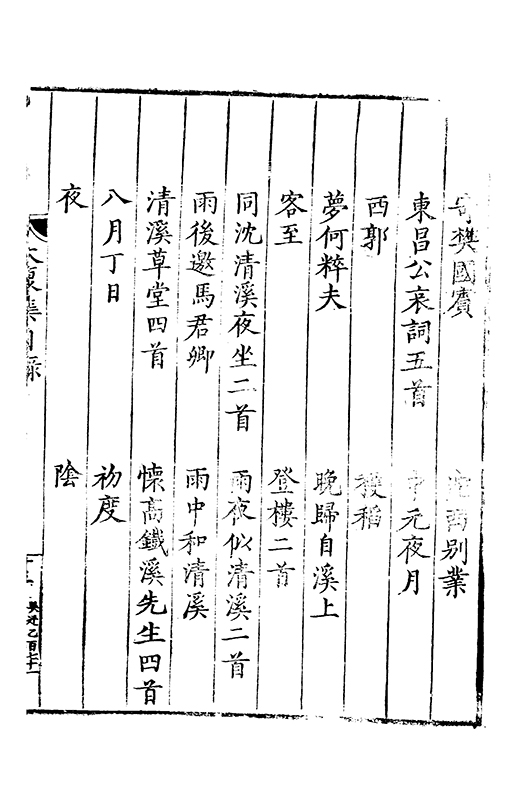 寄樊國賓　西別業
東昌公哀詞五首　中元夜月
西郭　穫稻
夢何粹夫　晚歸自溪上
客至　登樓二首
同沈清溪夜坐二首　雨夜似清溪二首
雨後邀馬君卿　雨中和清溪
清溪草堂四首　懷高鐵溪先生四首
八月丁日　初度
夜　陰
大復集目錄